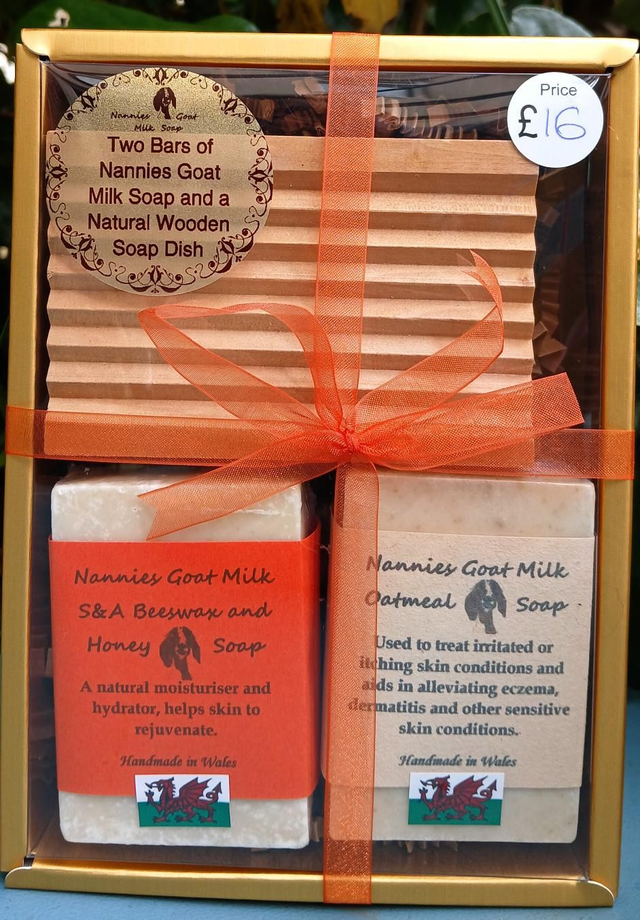 Nannies Goat
Milk Soap
Two Bars of
Nannies Goat
Milk Soap and a
Natural Wooden
Soap Dish
Price
£16
Nannies Goat Milk
S&A Beeswax and
Honey Soap
A natural moisturiser and
hydrator, helps skin to
rejuvenate.
Handmade in Wales
Nannies Goat Milk
Oatmeal Soap
Used to treat irritated or
itching skin conditions and
aids in alleviating eczema,
dermatitis and other sensitive
skin conditions.
Handmade in Wales